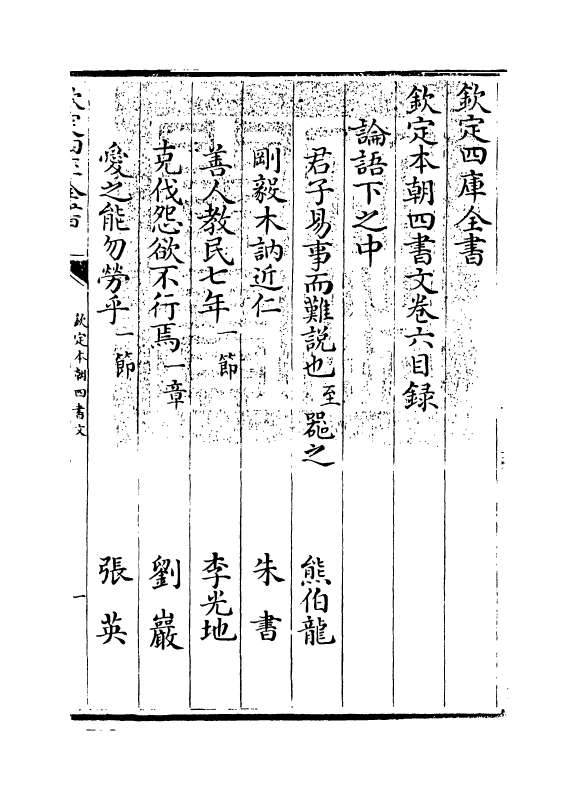 欽定四庫全書
欽定本朝四書文卷六目録
論語下之中
君子易事而難說也至器之 熊伯龍
剛毅木訥近仁 朱書
善人教民七年一節 李光地
克伐怨欲不行焉一章 劉巖
愛之能勿勞乎一節 張英
欽定四庫全書
欽定本朝四書文
一